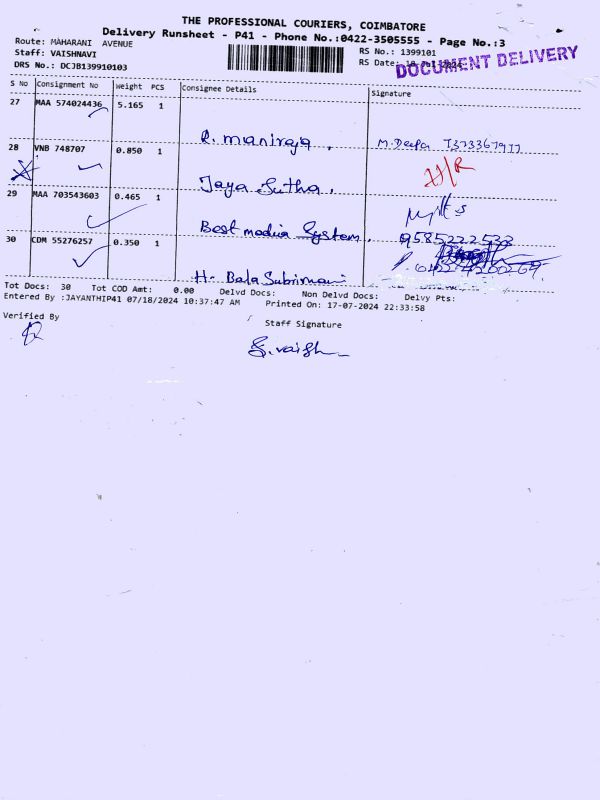 THE PROFESSIONAL COURIERS, COIMBATORE
Delivery Runsheet - P41 - Phone No.:0422-3505555 - Page No.:3
Route: MAHARANI AVENUE
Staff: VAISHNAVI
DRS No.: DCJB139910103
RS No.: 1399101
RS Date:
DOCUMENT DELIVERY
S No Consignment No Weight PCS Consignee Details Signature
27 MAA 574024436 5.165 1
R. maniraja, M. Deepa
28 VNB 748707 0.850 1 H/R
Jaya Sutha,
29 MAA 703543603 0.465 1
Best media System. 9585222533
30 CDM 55276257 0.350 1
H. Bala
Tot Docs: 30 Tot COD Amt: 0.00 Delvd Docs: Non Delvd Docs: Delvy Pts:
Entered By :JAYANTHIP41 07/18/2024 10:37:47 AM Printed On: 17-07-2024 22:33:58
Verified By Staff Signature
S. vaish